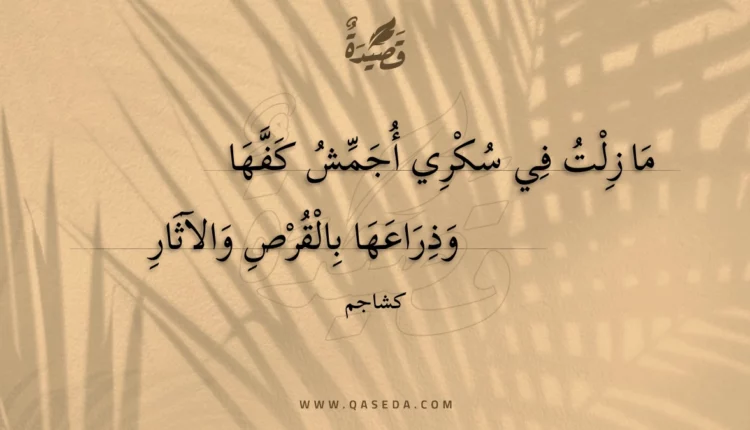 قَصِيدَةٌ
مَا زِلْتُ فِي سُكْرِي أُجَمِّشُ كَفَّهَا
وَذِرَاعَهَا بِالْقُرْصِ وَالآثَارِ
كشاجم
WWW.QASEDA.COM